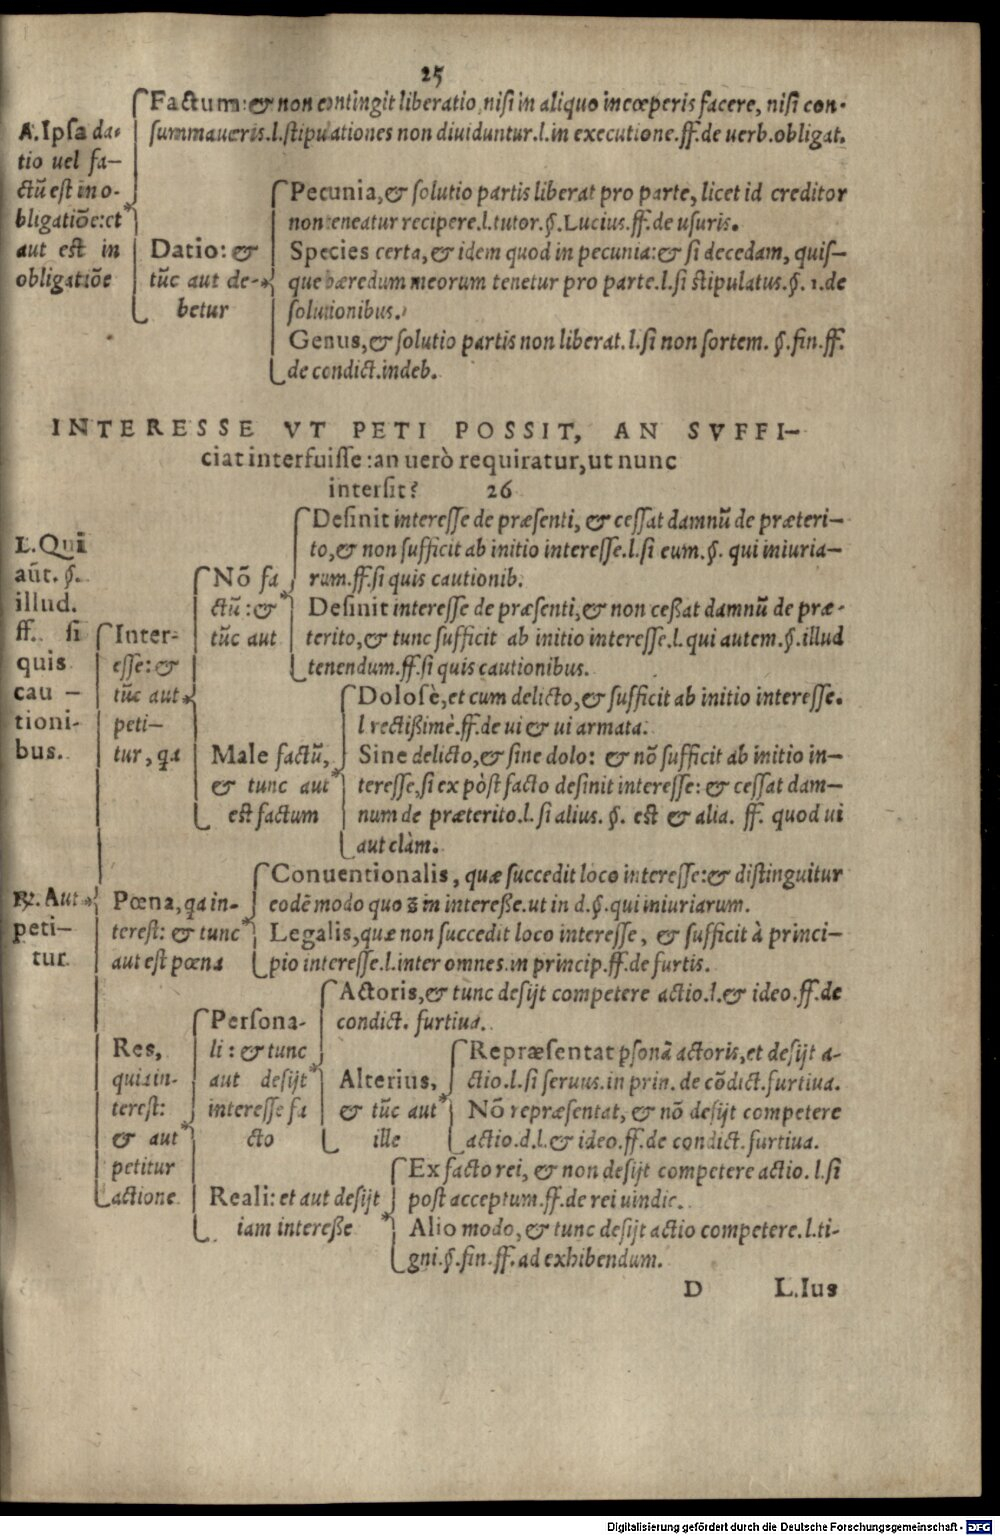 25
Factum: & non contingit liberatio, nisi in aliquo incœperis facere, nisi con-
summaueris. l. stipulationes non diuiduntur. l. in executione. ff. de uerb. obligat.
A. Ipsa da-
tio uel fa-
ctū est in o-
bligatiōe: et
aut est in
obligatiōe
Datio: &
tūc aut de-
betur
Pecunia, & solutio partis liberat pro parte, licet id creditor
non teneatur recipere. l. tutor. §. Lucius. ff. de usuris.
Species certa, & idem quod in pecunia: & si decedam, quis-
que hæredum meorum tenetur pro parte. l. si stipulatus. §. 1. de
solutionibus.
Genus, & solutio partis non liberat. l. si non sortem. §. fin. ff.
de condict. indeb.
INTERESSE VT PETI POSSIT, AN SVFFI-
ciat interfuisse: an uerò requiratur, ut nunc
intersit? 26
L. Qui
aūt. §.
illud.
ff. si
quis
cau-
tioni-
bus.
℞. Aut
peti-
tur.
Inter-
esse: &
tūc aut
peti-
tur, qa
Nō fa
ctū: &
tūc aut
Desinit interesse de præsenti, & cessat damnū de præteri-
to, & non sufficit ab initio interesse. l. si eum. §. qui iniuria-
rum. ff. si quis cautionib.
Desinit interesse de præsenti, & non ceßat damnū de præ-
terito, & tunc sufficit ab initio interesse. l. qui autem. §. illud
tenendum. ff. si quis cautionibus.
Male factū,
& tunc aut
est factum
Dolosè, et cum delicto, & sufficit ab initio interesse.
l rectißimè. ff. de ui & ui armata.
Sine delicto, & sine dolo: & nō sufficit ab initio in-
teresse, si ex pòst facto desinit interesse: & cessat dam-
num de præterito. l. si alius. §. est & alia. ff. quod ui
aut clàm.
Pœna, qa in-
terest: & tunc
aut est pœna
Conuentionalis, quæ succedit loco interesse: & distinguitur
eodē modo quo in intereße. ut in d. §. qui iniuriarum.
Legalis, quæ non succedit loco interesse, & sufficit à princi-
pio interesse. l. inter omnes. in princip. ff. de furtis.
Res,
quia in-
terest:
& aut
petitur
actione.
Persona-
li: & tunc
aut desijt
interesse fa
cto
Actoris, & tunc desijt competere actio. l. & ideo. ff. de
condict. furtiua.
Alterius,
& tūc aut
ille
Repræsentat psonā actoris, et desijt a-
ctio. l. si seruus. in prin. de cōdict. furtiua.
Nō repræsentat, & nō desijt competere
actio. d. l. & ideo. ff. de condict. furtiua.
Reali: et aut desijt
iam intereße
Ex facto rei, & non desijt competere actio. l. si
post acceptum. ff. de rei uindic.
Alio modo, & tunc desijt actio competere. l. ti-
gni. §. fin. ff. ad exhibendum.
D L. Ius
Digitalisierung gefördert durch die Deutsche Forschungsgemeinschaft - DFG